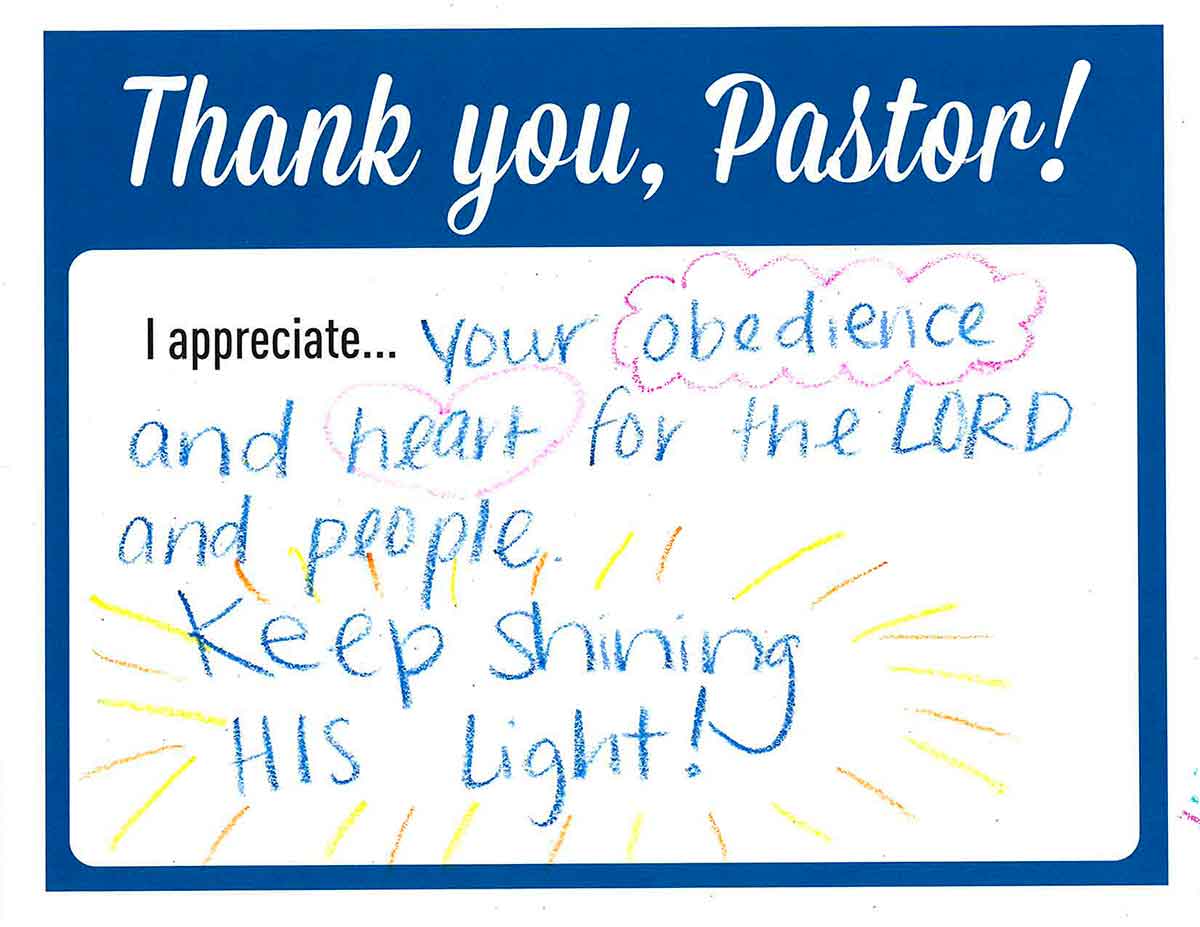 Thank you, Pastor!
I appreciate... your obedience
and heart for the LORD
and people.
Keep shining
HIS Light!